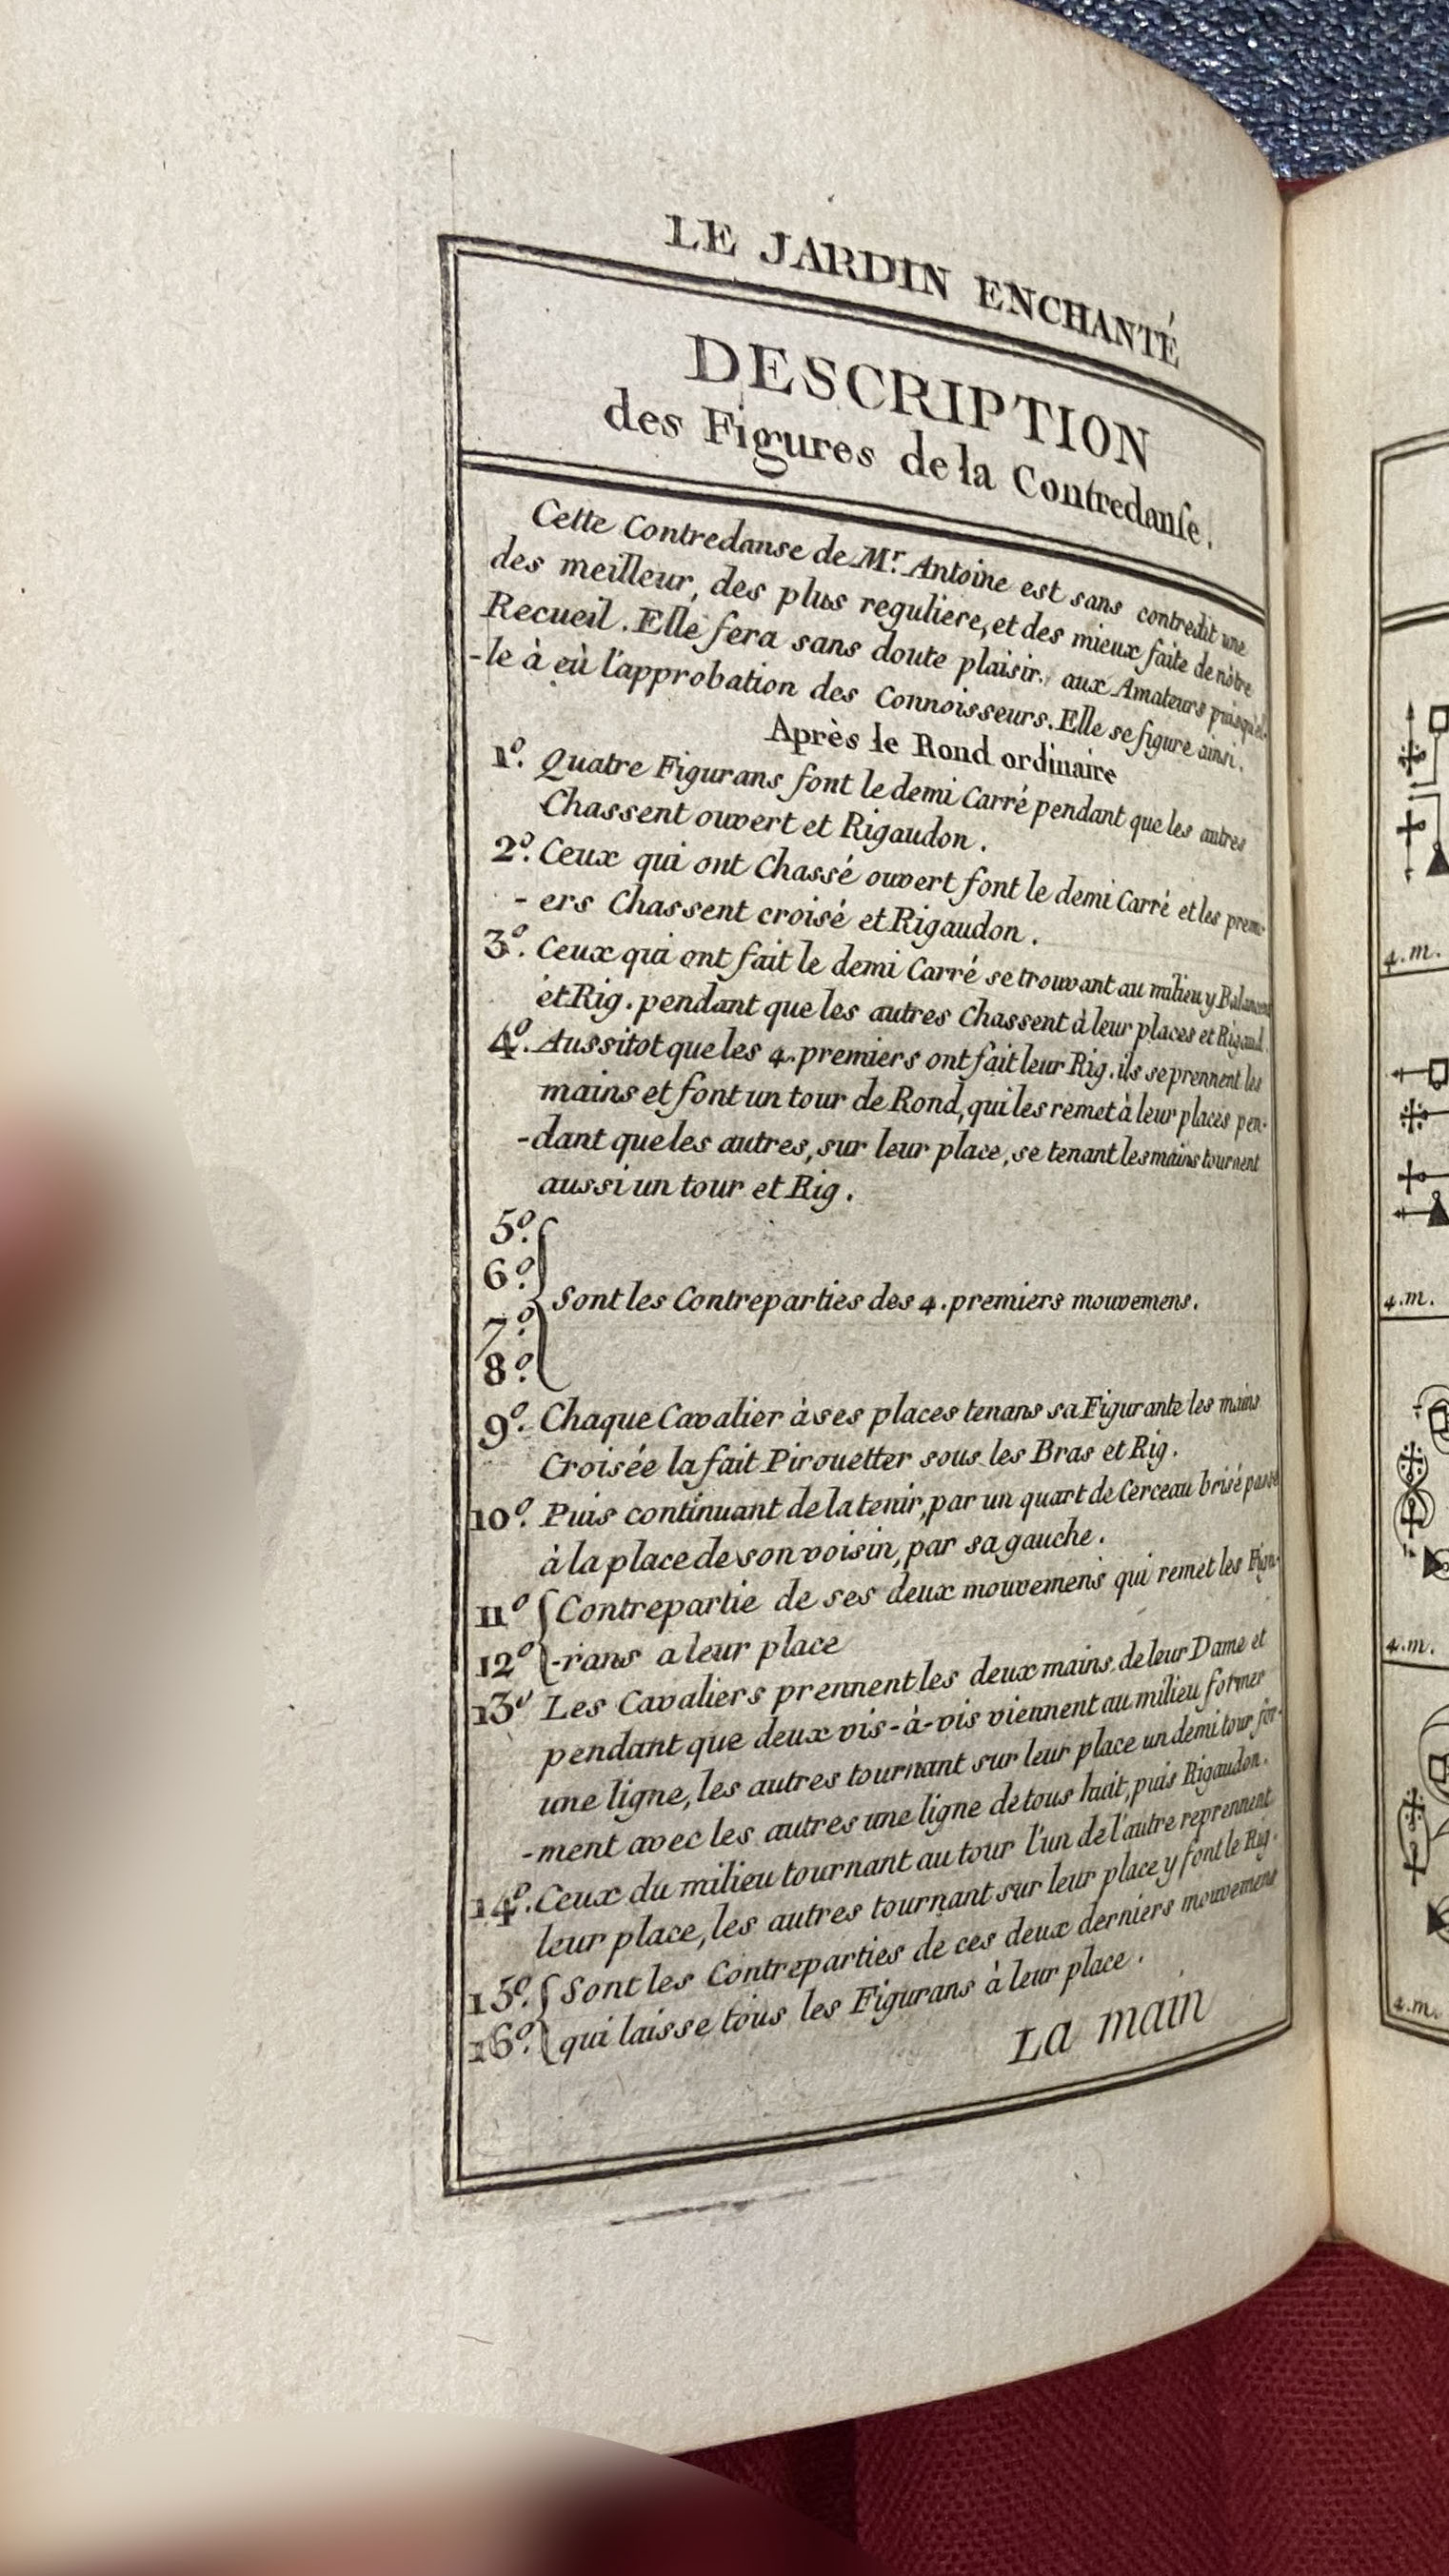 LE JARDIN ENCHANTÉ
DESCRIPTION
des Figures de la Contredanſe.
Cette Contredanse de Mr. Antoine est sans contredit une
des meilleur, des plus reguliere, et des mieux faite de nôtre
Recueil. Elle fera sans doute plaisir, aux Amateurs puisqu'el-
-le à eù l'approbation des Connoisseurs. Elle se figure ainsi.
Après le Rond ordinaire
1º. Quatre Figurans font le demi Carré pendant que les autres
Chassent ouvert et Rigaudon.
2º. Ceux qui ont Chassé ouvert font le demi Carré et les premi-
-ers Chassent croisé et Rigaudon.
3º. Ceux qui ont fait le demi Carré se trouvant au milieu y Balancent
et Rig. pendant que les autres Chassent à leur places et Rigaud.
4º. Aussitot que les 4. premiers ont fait leur Rig. ils se prennent les
mains et font un tour de Rond, qui les remet à leur places pen-
-dant que les autres, sur leur place, se tenant les mains tournent
aussi un tour et Rig.
5º.
6º.
Sont les Contreparties des 4. premiers mouvemens.
7º.
8º.
9º. Chaque Cavalier à ses places tenans sa Figurante les mains
Croisée la fait Pirouetter sous les Bras et Rig.
10º. Puis continuant de la tenir, par un quart de Cerceau brisé passe
à la place de son voisin, par sa gauche.
11º { Contrepartie de ses deux mouvemens qui remet les Figu-
12º { -rans a leur place
13º Les Cavaliers prennent les deux mains de leur Dame et
pendant que deux vis-à-vis viennent au milieu former
une ligne, les autres tournant sur leur place un demi tour for-
-ment avec les autres une ligne de tous huit, puis Rigaudon.
14º. Ceux du milieu tournant au tour l'un de l'autre reprennent
leur place, les autres tournant sur leur place y font le Rig.
15º. { Sont les Contreparties de ces deux derniers mouvemens
16º. { qui laisse tous les Figurans à leur place.
La main
4.m.
4.m.
4.m.
4.m.